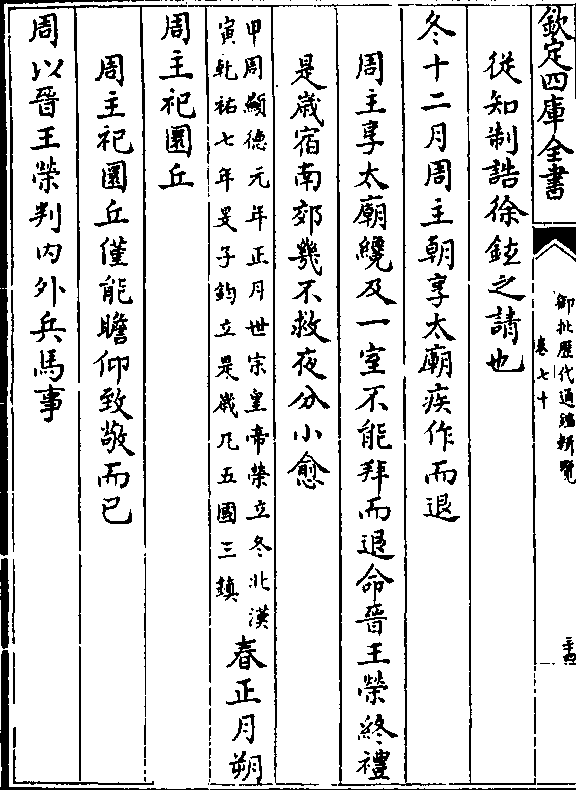 欽定四庫全書
御批歷代通鑑輯覽
卷七十
三十四
從知制誥徐鉉之請也
冬十二月周主朝享太廟疾作而退
周主享太廟纔及一室不能拜而退命晉王榮終禮
是歲宿南郊幾不救夜分小愈
甲周顯德元年正月世宗皇帝榮立冬北漢
寅乾祐七年旻子鈞立是歲凡五國三鎮
春正月朔
周主祀圜丘
周主祀圜丘僅能瞻仰致敬而已
周以晉王榮判內外兵馬事